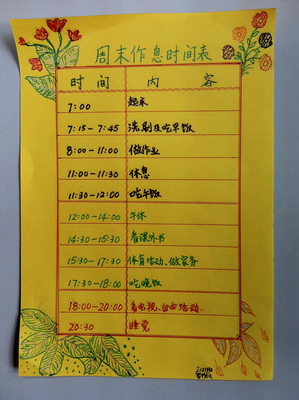 周末作息时间表
时间 内容
7:00 起床
7:15-7:45 洗刷及吃早饭
8:00-11:00 做作业
11:00-11:30 休息
11:30-12:00 吃午饭
12:00-14:00 午休
14:30-15:30 看课外书
15:30-17:30 体育活动、做家务
17:30-18:00 吃晚饭
18:00-20:00 看电视、自由活动
20:30 睡觉